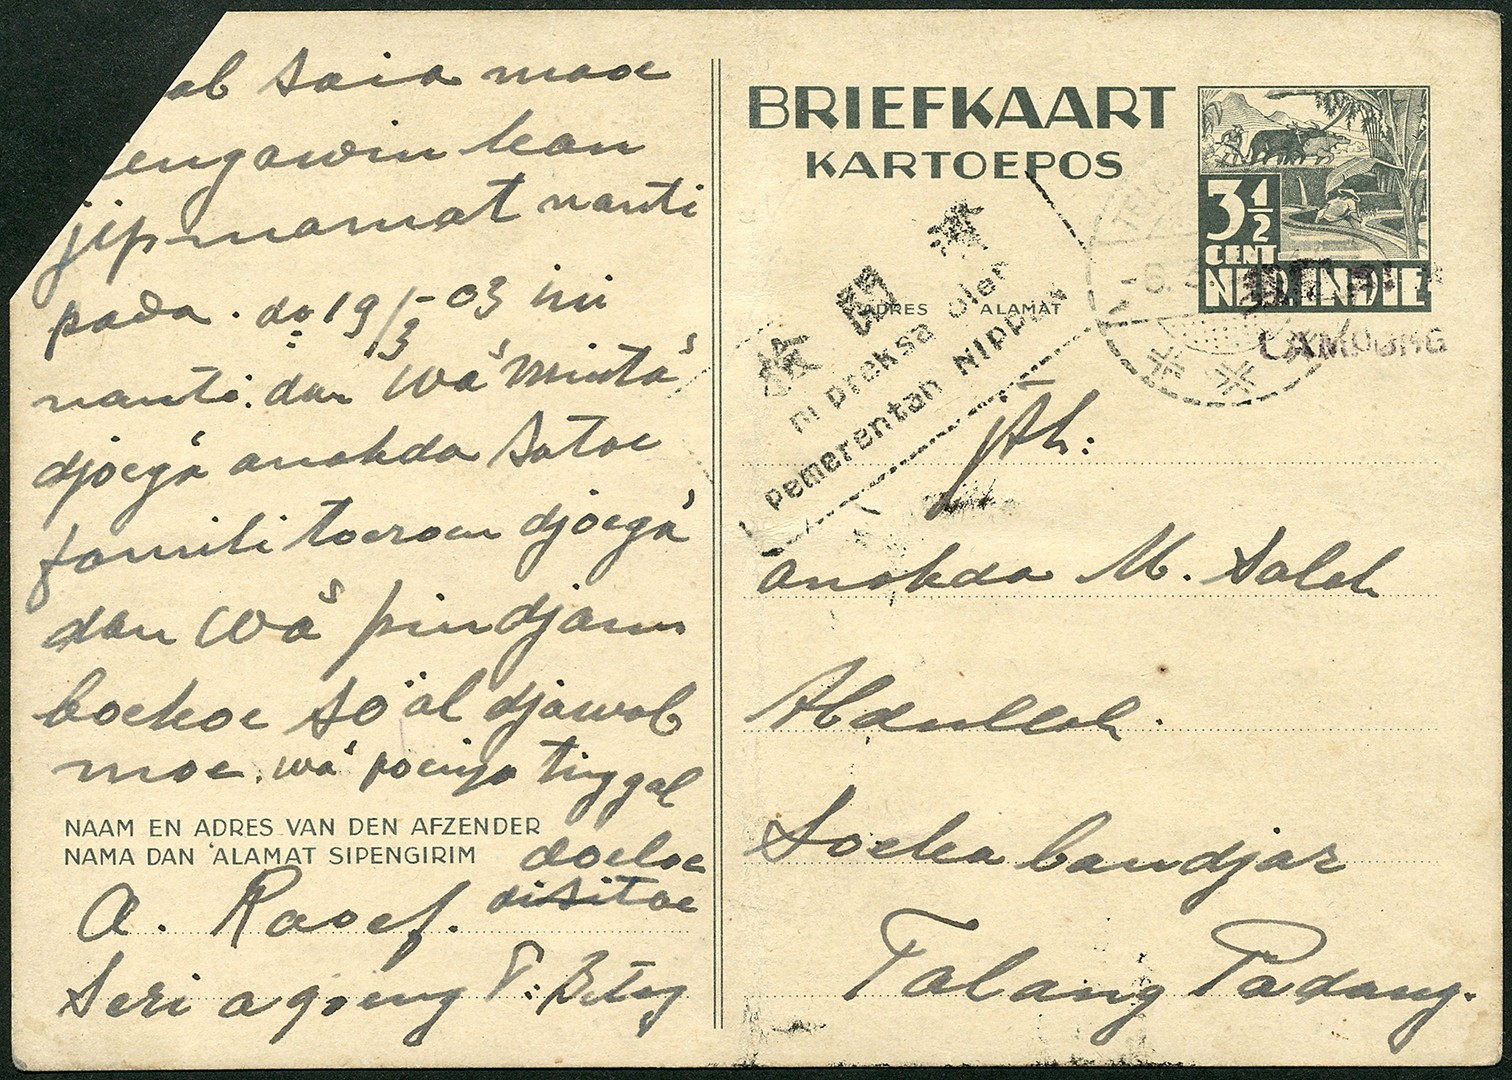 ab saia maoe
engawin kan
jip mamat nanti
pada. do 19/3-03 ini
nanti. dan Wa' minta'
djoega' anakda satoe
famili toeroen djoega'
dan Wa' pindjam
boekoe so'al djawab
moe. wa' poenja tinggal
doeloe
disitoe
NAAM EN ADRES VAN DEN AFZENDER
NAMA DAN 'ALAMAT SIPENGIRIM
A. Raoef.
Seri agoeng
BRIEFKAART
KARTOEPOS
3½
CENT
NED. INDIE
ADRES ALAMAT
檢閱濟
ni preksa oleh
pemerentah Nippon
LAMPOENG
Jth:
anakda M. Saleh
Abdullah.
Soeka bandjar
Talang Padang.